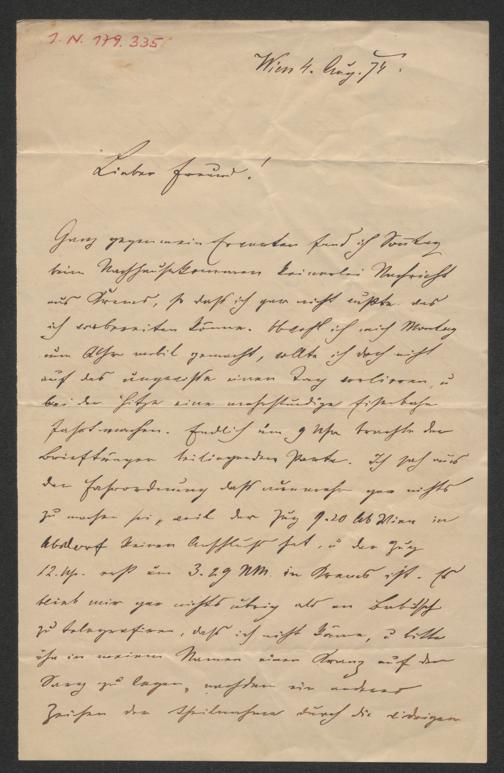 I. N. 179.335.
Wien 4. Aug. 74.
Lieber Freund!
Ganz gegen mein Erwarten fand ich Sonntag
beim Nachhausekommen keinerlei Nachricht
aus Krems, so daß ich gar nicht wußte was
ich vorbereiten könne. Obwohl ich mich Montag
um Uhr mobil gemacht, wollte ich doch nicht
auf das ungewisse einen Tag verlieren, u
bei der Hitze eine mehrstündige Eisenbahn
fahrt machen. Endlich um 9 Uhr brachte der
Briefträger beiliegendes Parte. Ich sah aus
der Fahrordnung daß nunmehr gar nichts
zu machen sei, weil der Zug 9.20 ab Wien in
Absdorf keinen Anschluß hat, u der Zug
12. Uhr erst um 3.29 NM. in Krems ist. Es
blieb mir gar nichts übrig als an
zu telegrafieren, daß ich nicht käme, u bitte
ihn in meinem Namen einen Kranz auf den
Sarg zu legen, nachdem ein anderes
Zeichen der Theilnahme durch die widrigen